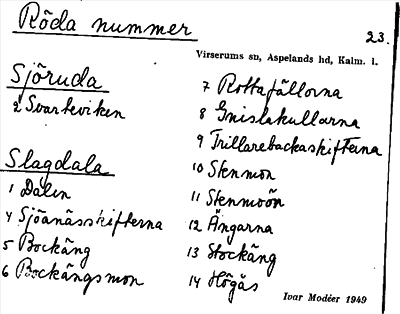 Röda nummer
23.
Virserums sn, Aspelands hd, Kalm. l.
Sjöruda
2 Svarteviken
Slagdala
1 Dalen
4 Sjöanässkifterna
5 Bockäng
6 Bockängsmon
7 Rottafällorna
8 Gnislakullarna
9 Trillarebackaskifterna
10 Stenmon
11 Stenmoön
12 Ängarna
13 Stockäng
14 Högås
Ivar Modéer 1949